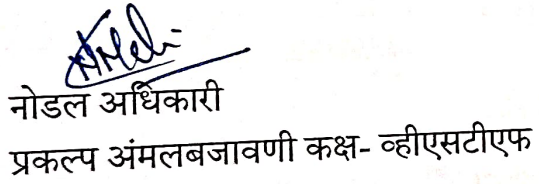 नोडल अधिकारी
प्रकल्प अंमलबजावणी कक्ष- व्हीएसटीएफ